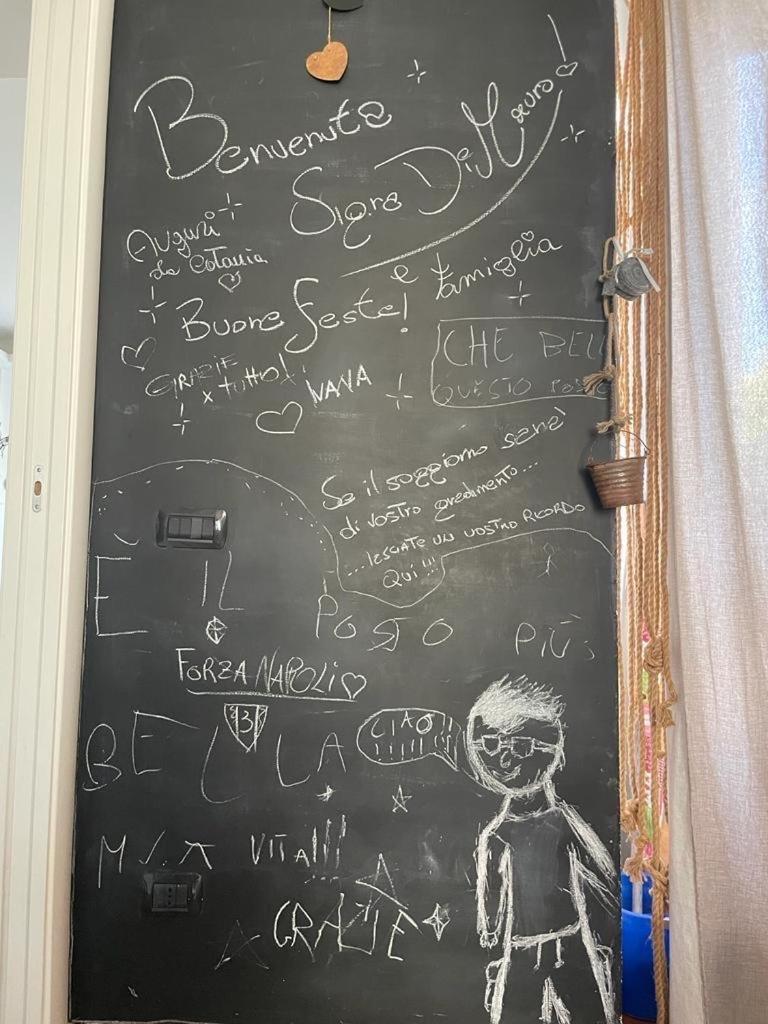 Benvenuta
Sig.ra Di Mauro!
e famiglia
Auguri
da Catania
Buone feste!
GRAZIE
x tutto!
IVANA
CHE BELL
QUESTO POSTO
Se il soggiorno sarà
di vostro gradimento...
...lasciate un vostro RICORDO
QUI!!!
È IL POSTO PIÙ
FORZA NAPOLI
3
BELLA
CIAO!!!
MIA VITA!!!
GRAZIE